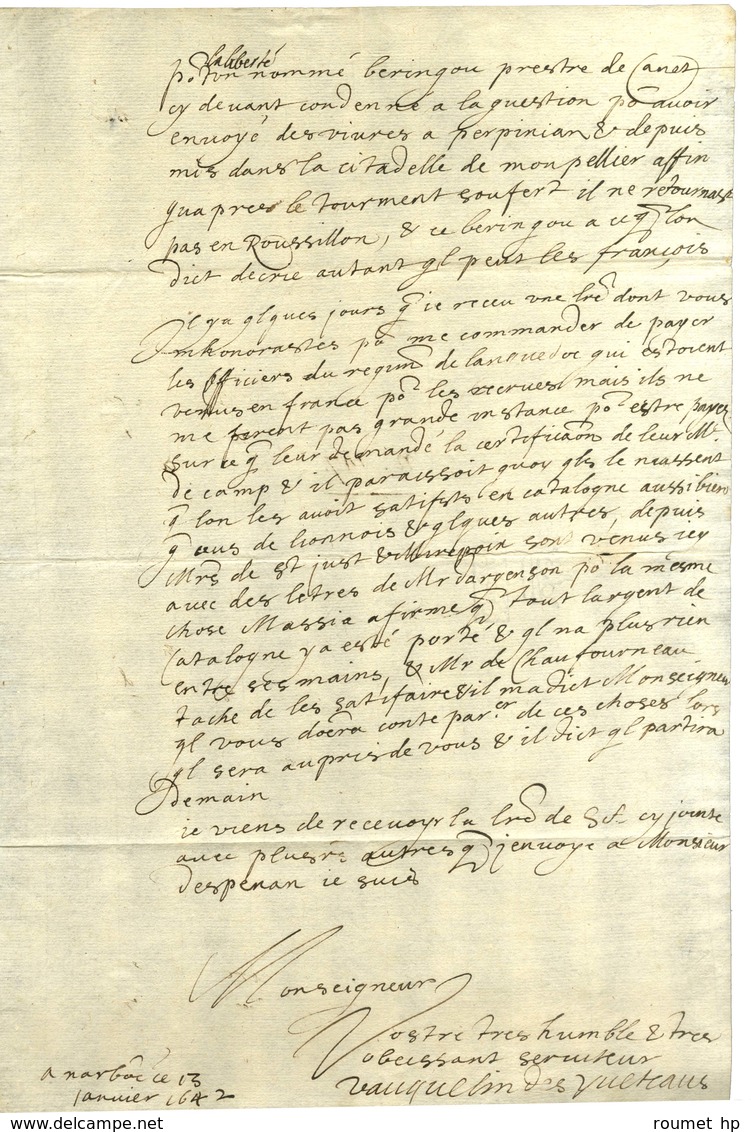 la liberté
po.r un nommé beringou prestre de Canet
cy devant condenné a la question po.r avoir
envoyé des vivres a perpinian & depuis
mis dans la citadelle de monpellier affin
quapres le tourment soufert il ne retournast
pas en Roussillon, & ce beringou a ce q lon
dict decrie autant ql peut les françois
Il y a qlques jours q ie receu une lre dont vous
mhonorastes po.r me commander de payer
les officiers du regim.t de languedoc qui estoient
venus en france po.r les recrues mais ils ne
me firent pas grande instance po.r estre payes
sur ce q leur demandé la certificaon de leur M.e
de camp & il paraissoit quoy qls le niassent
q lon les avoit satisfets en catalogne aussi bien
q ceus de lionnois & qlques autres, depuis
Mrs de St just & Mirepoin sont venus icy
avec des letres de Mr dargenson po.r la mesme
chose Massia afirme q tout largent de
Catalogne y a esté porté & ql na plus rien
entre ses mains, & Mr de Chaufourneau
tache de les satifaire & il ma dict Monseigneur
ql vous doēra conte par.er de ces choses lors
ql sera aupris de vous & il dict ql partira
demain
ie viens de recevoyr la lre de St cy jointe
avec plusrs autres q jenvoye a Monsieur
despenan ie suis
Monseigneur
Vostre tres humble & tres
obeissant serviteur
Vauquelin des yveteaus
a narbōe ce 13
Janvier 1642
roumet hp